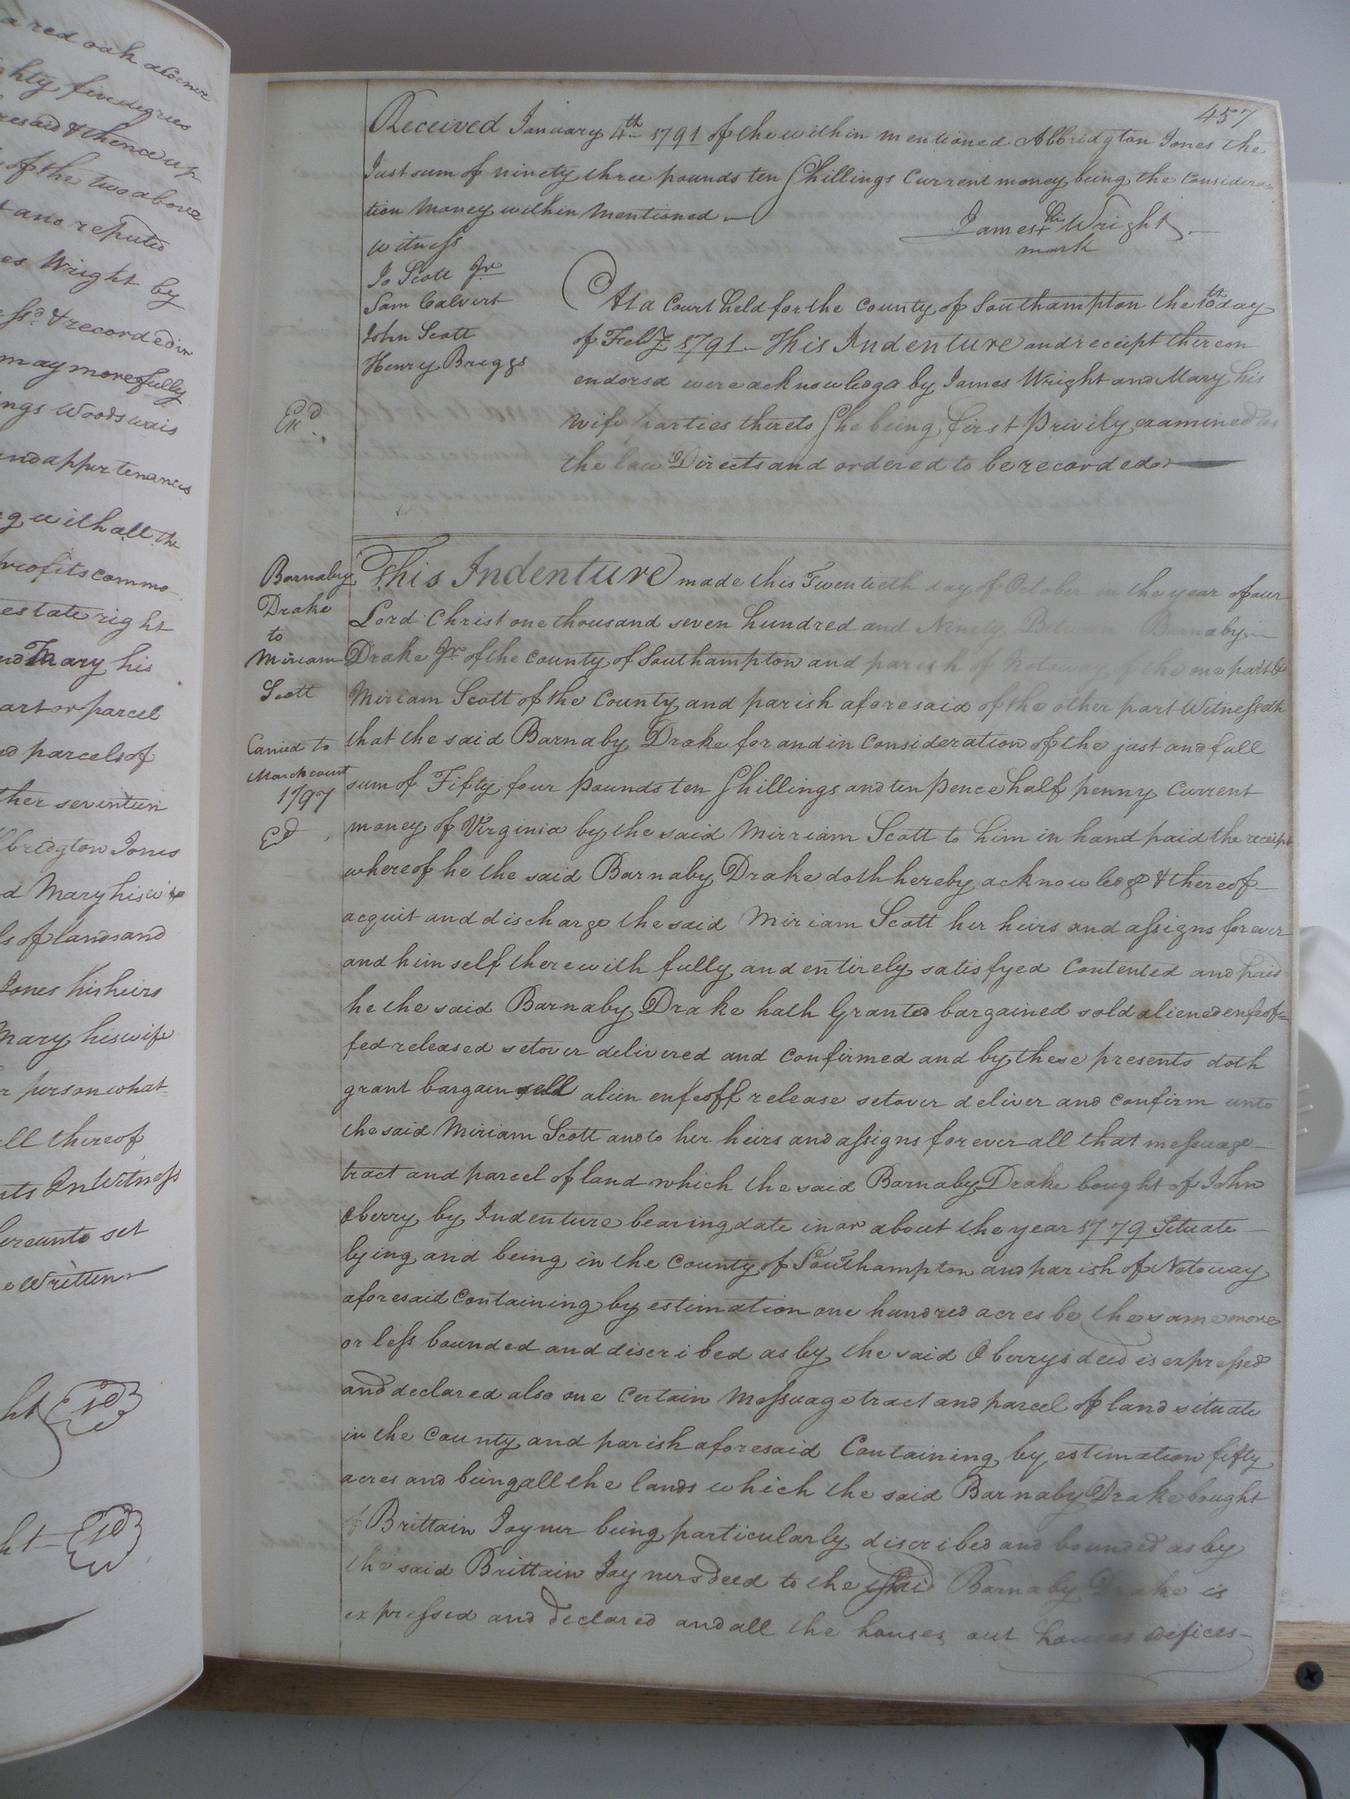 a red oak a corner
ghty five degrees
resaid & thence up
of the two above
t and reputed
es Wright by
& recorded in
may more fully
ings woods ways
and appurtenances
g with all the
profits commo
estate right
and Mary his
art or parcel
nd parcels of
ther seventeen
lbridgton Jones
d Mary his wife
ls of land and
Jones his heirs
Mary his wife
r person what
ll thereof
nts In Witness
hereunto set
e Written
ht
ht
457
Received January 4th 1791 of the within mentioned Albridgton Jones the
Just sum of ninety three pounds ten Shillings Current money being the Considera
tion Money within Mentioned
James his Wright
+
mark
witness
Jo Scott Jr
Sam Calvert
John Scott
Henry Briggs
Exd
At a Court held for the County of Southampton the 10th day
of Feby 1791 - This Indenture and receipt thereon
endorsd were acknowledgd by James Wright and Mary his
wife parties thereto She being first Privily examined as
the law Directs and ordered to be recorded
Barnaby
Drake
to
Miriam
Scott
Carried to
March court
1797
Ed
This Indenture made this Twentieth day of October in the year of our
Lord Christ one thousand seven hundred and Ninety Between Barnaby
Drake Jr of the County of Southampton and parish of Notoway of the one part &
Miriam Scott of the County and parish aforesaid of the other part Witnesseth
that the said Barnaby Drake for and in Consideration of the just and full
sum of Fifty four pounds ten Shillings and ten pence half penny Current
money of Virginia by the said Mirriam Scott to him in hand paid the receipt
whereof he the said Barnaby Drake doth hereby acknowledge & thereof
acquit and discharge the said Miriam Scott her heirs and assigns forever
and him self therewith fully and entirely satisfyed Contented and paid
he the said Barnaby Drake hath Granted bargained sold aliened enfeof=
fed released setover delivered and confirmed and by these presents doth
grant bargain sell alien enfeoff release setover deliver and confirm unto
the said Miriam Scott and to her heirs and assigns forever all that messuage
tract and parcel of land which the said Barnaby Drake bought of John
Oberry by Indenture bearing date in or about the year 1779 Situate
lying and being in the County of Southampton and parish of Notoway
aforesaid containing by estimation one hundred acres be the same more
or less bounded and discribed as by the said Oberrys deed is expressed
and declared also one Certain Messuage tract and parcel of land situate
in the County and parish aforesaid Containing by estimation fifty
acres and being all the lands which the said Barnaby Drake bought
of Brittain Joyner being particularly discribed and bounded as by
the said Brittain Joyners deed to the said Barnaby Drake is
expressed and declared and all the houses out houses edifices